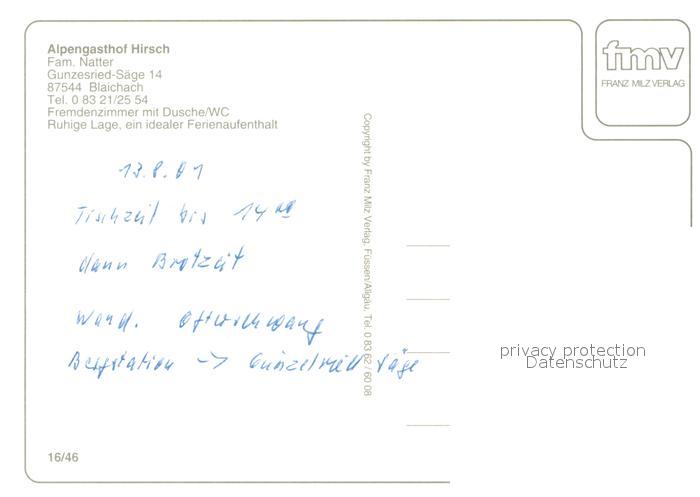 Alpengasthof Hirsch
Fam. Natter
Gunzesried-Säge 14
87544 Blaichach
Tel. 0 83 21/25 54
Fremdenzimmer mit Dusche/WC
Ruhige Lage, ein idealer Ferienaufenthalt
fmv
FRANZ MILZ VERLAG
Copyright by Franz Milz Verlag, Füssen/Allgäu, Tel. 0 83 62 / 60 08
13.8.01
Tischzeit bis 14 00
dann Brotzeit
Wand. Ofterschwang
Bergstation -> Günzelried Säge
privacy protection
Datenschutz
16/46